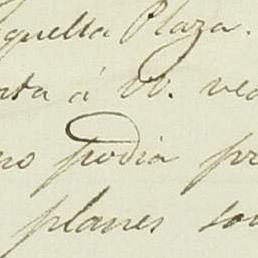 aquella Plaza.
nta á VV. ved
no podia pr
planes son